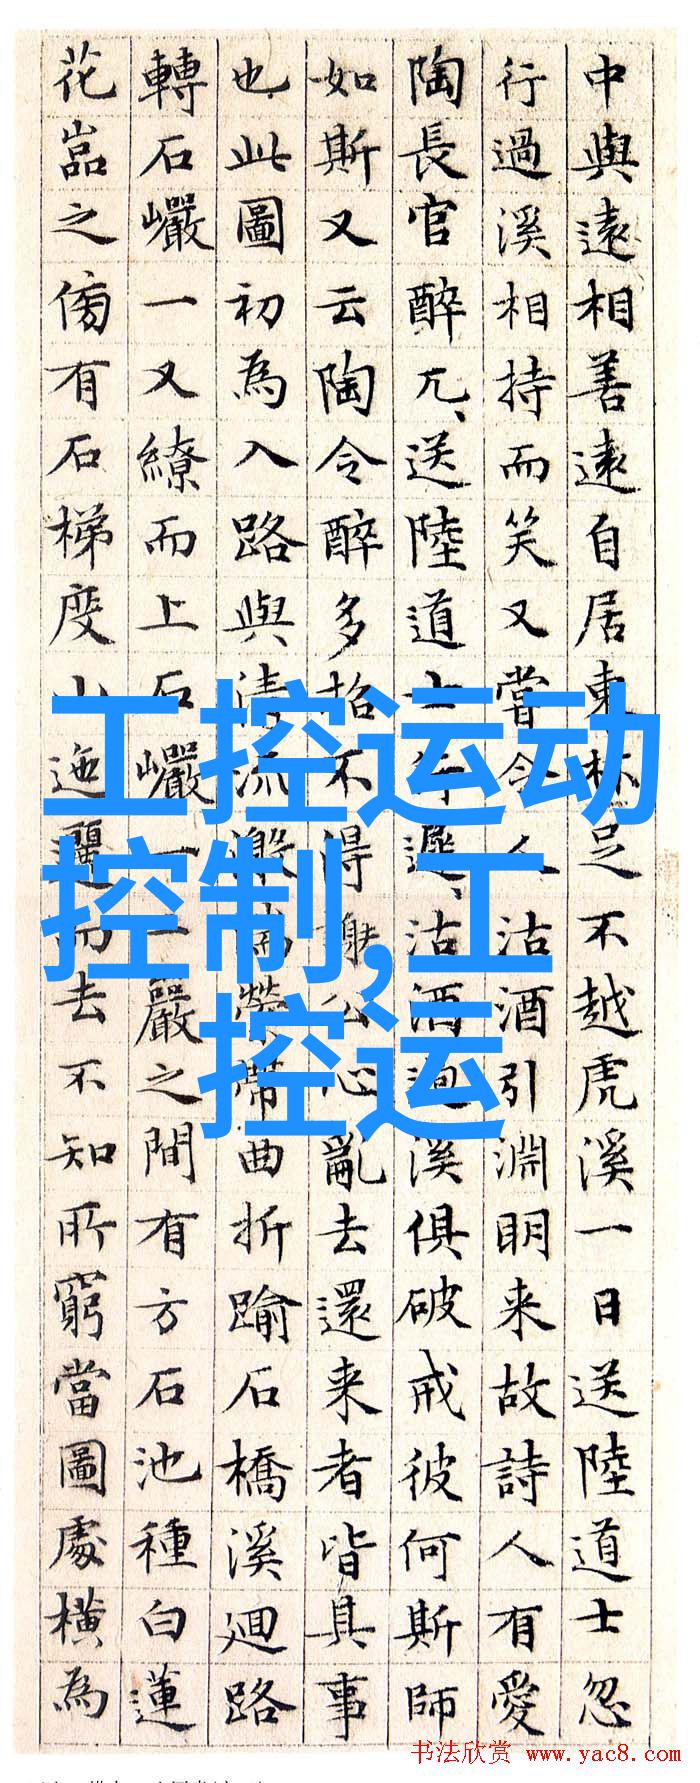 中與遠相善遠自居東林足不越虎溪一日送陸道士忽
行過溪相持而笑又嘗令人沽酒引淵明来故詩人有愛
陶長官醉兀、送陸道士行遲、沽酒過溪俱破戒彼何斯師
如斯又云陶令醉多招不得謝公心亂去還来者皆具事
也此圖初為入路與清流激湍縈帶曲折踰石橋溪迴路
轉石巖一又繚而上石巖一一巖之間有方石池種白蓮
花嵓之傍有石梯度山迤邐而去不知所窮當圖處橫為
工控运动
控制,工
控运
书法欣赏 www.yac8.com